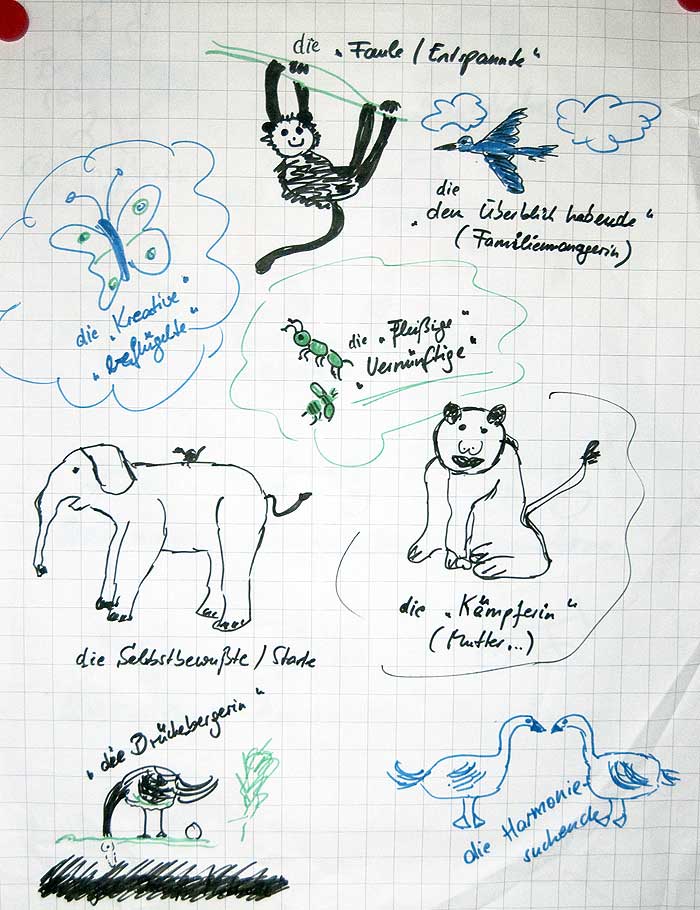 die „Faule / Entspannte"
die
„den Überblick habende"
(Familienmangerin)
die „Kreative"
„beflügelte"
die „Fleißige"
„Vernünftige"
die „Kämpferin"
(Mutter...)
die Selbstbewußte / Starke
„die Drückebergerin"
die Harmonie-
suchende